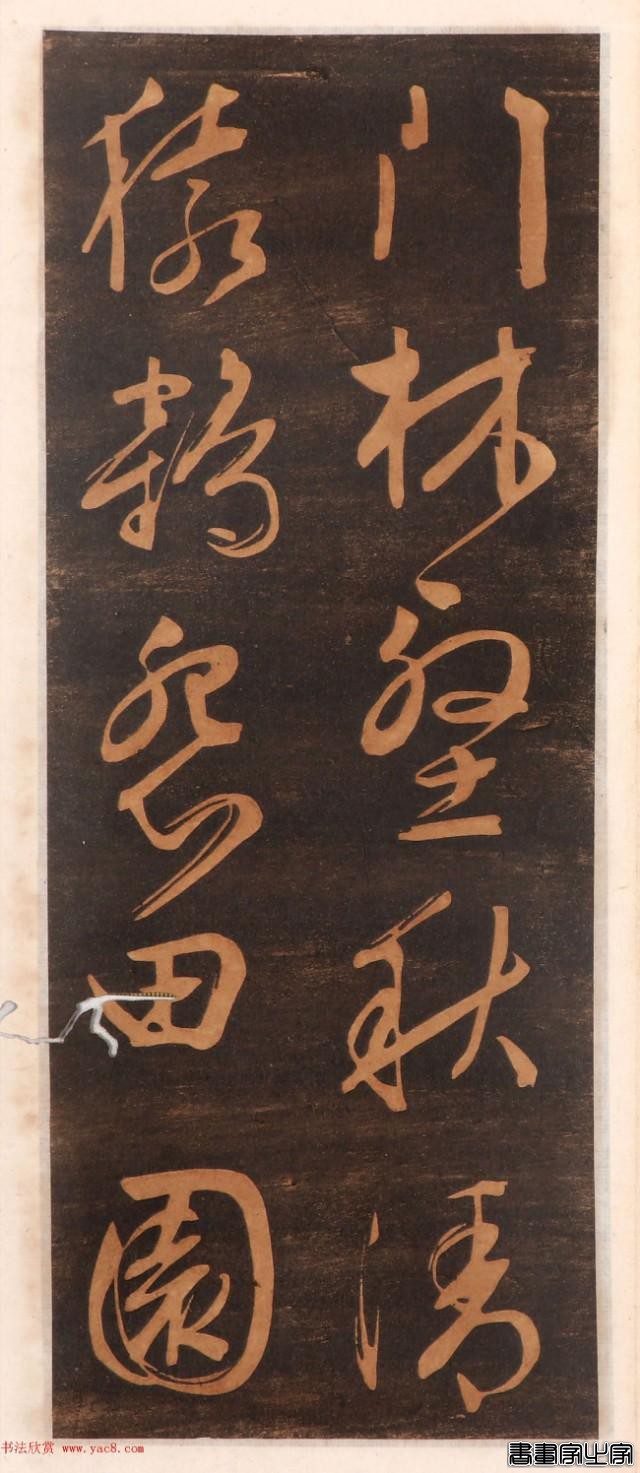 門林壑秋清
猿鶴怨田園
书法欣赏 www.yac8.com
書畫家之家